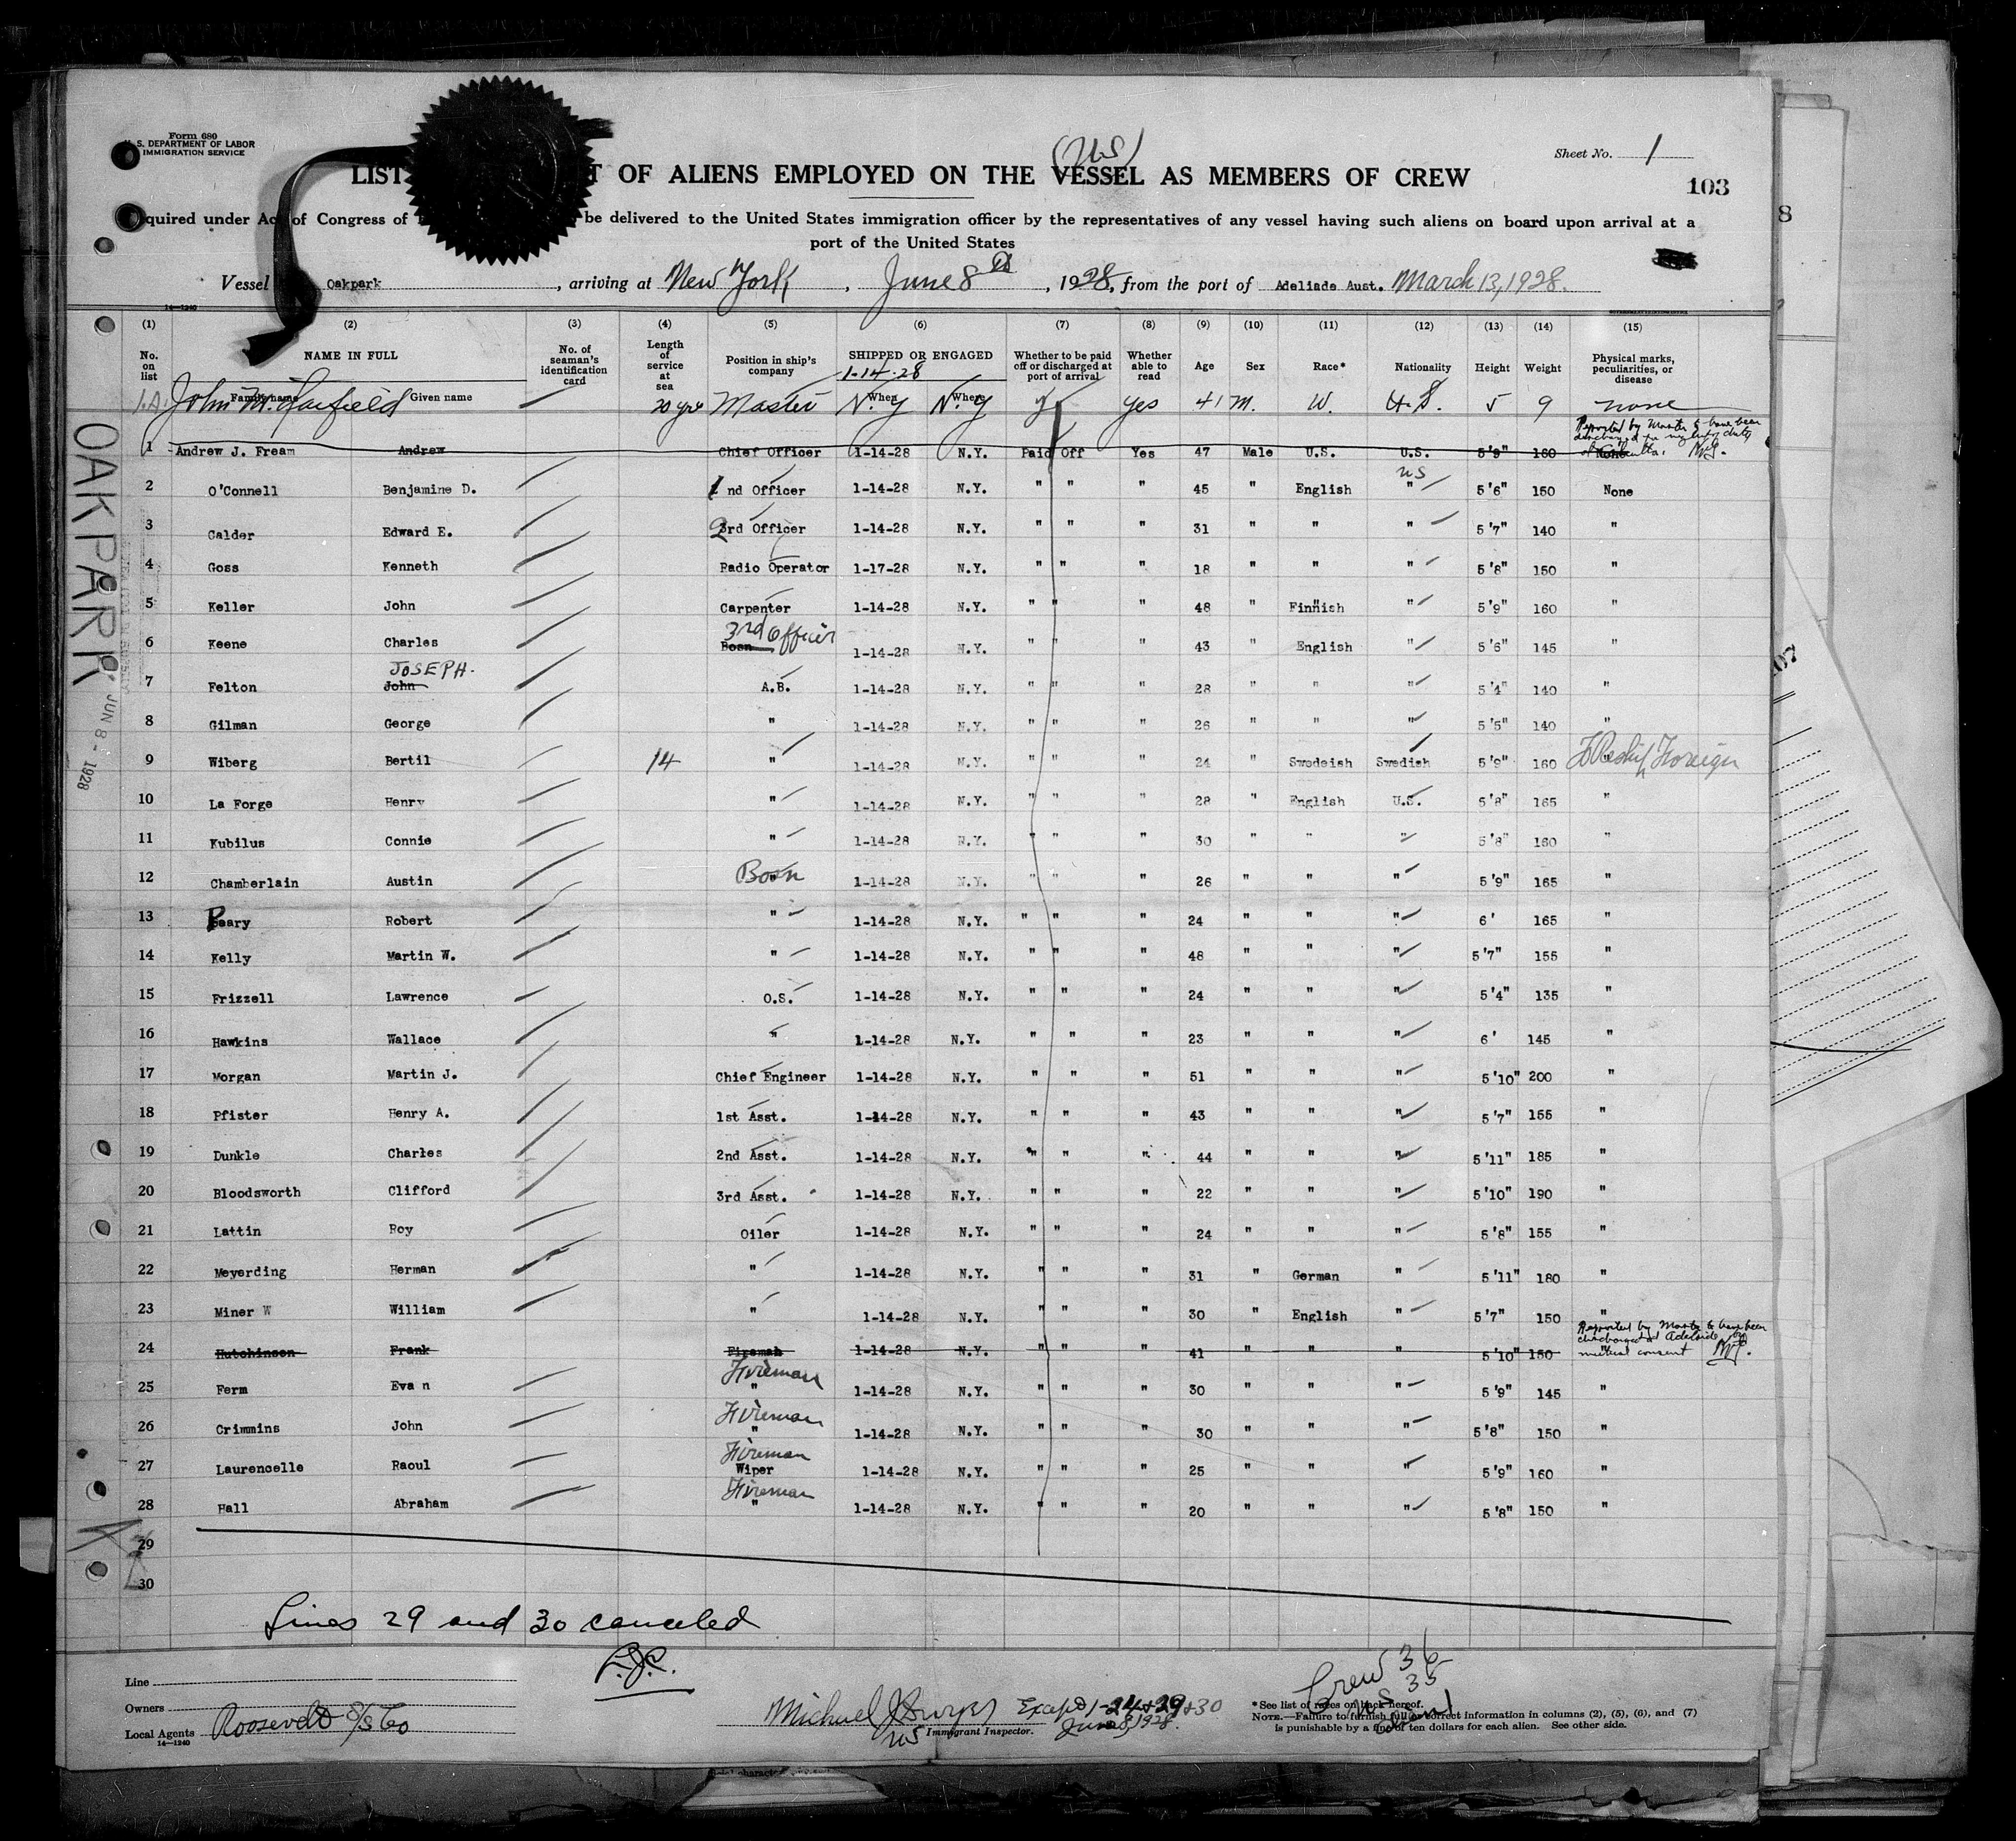 Form 680
U. S. DEPARTMENT OF LABOR
IMMIGRATION SERVICE
Sheet No. 1
(US)
103
LIST OF ALIENS EMPLOYED ON THE VESSEL AS MEMBERS OF CREW
quired under Act of Congress of be delivered to the United States immigration officer by the representatives of any vessel having such aliens on board upon arrival at a
port of the United States
Vessel Oakpark, arriving at New York, June 8th, 1928, from the port of Adeliade Aust. March 13, 1928.
14—1240
(1) (2) (3) (4) (5) (6) (7) (8) (9) (10) (11) (12) (13) (14) (15)
No. on list NAME IN FULL No. of seaman's identification card Length of service at sea Position in ship's company SHIPPED OR ENGAGED Whether to be paid off or discharged at port of arrival Whether able to read Age Sex Race* Nationality Height Weight Physical marks, peculiarities, or disease
1-14-28
Family name Given name When Where
1A John M. Garfield 20 yrs Master N.Y N.Y Yes 41 M. W. U.S. 5 9 none
Reported by Master to have been
discharged for neglect of duty
1 Andrew J. Fream Andrew Chief Officer 1-14-28 N.Y. Paid Off Yes 47 Male U.S. U.S. 5'9" 160 None
2 O'Connell Benjamine D. 1 nd Officer 1-14-28 N.Y. " " " 45 " English " US 5'6" 150 None
3 Calder Edward E. 2 3rd Officer 1-14-28 N.Y. " " " 31 " " " 5'7" 140 "
4 Goss Kenneth Radio Operator 1-17-28 N.Y. " " " 18 " " " 5'8" 150 "
5 Keller John Carpenter 1-14-28 N.Y. " " " 48 " Finnish " 5'9" 160 "
6 Keene Charles Bosn 3rd Officer 1-14-28 N.Y. " " " 43 " English " 5'6" 145 "
JOSEPH.
7 Felton John A.B. 1-14-28 N.Y. " " " 28 " " " 5'4" 140 "
8 Gilman George " 1-14-28 N.Y. " " " 26 " " " 5'5" 140 "
9 Wiberg Bertil 14 " 1-14-28 N.Y. " " " 24 " Swedeish Swedish 5'9" 160 To Reship Foreign
10 La Forge Henry " 1-14-28 N.Y. " " " 28 " English U.S. 5'8" 165 "
11 Kubilus Connie " 1-14-28 N.Y. " " " 30 " " " 5'8" 160 "
12 Chamberlain Austin Bosn 1-14-28 N.Y. " " " 26 " " " 5'9" 165 "
13 Peary Robert " 1-14-28 N.Y. " " " 24 " " " 6' 165 "
14 Kelly Martin W. " 1-14-28 N.Y. " " " 48 " " " 5'7" 155 "
15 Frizzell Lawrence O.S. 1-14-28 N.Y. " " " 24 " " " 5'4" 135 "
16 Hawkins Wallace " 1-14-28 N.Y. " " " 23 " " " 6' 145 "
17 Morgan Martin J. Chief Engineer 1-14-28 N.Y. " " " 51 " " " 5'10" 200 "
18 Pfister Henry A. 1st Asst. 1-14-28 N.Y. " " " 43 " " " 5'7" 155 "
19 Dunkle Charles 2nd Asst. 1-14-28 N.Y. " " " 44 " " " 5'11" 185 "
20 Bloodsworth Clifford 3rd Asst. 1-14-28 N.Y. " " " 22 " " " 5'10" 190 "
21 Lattin Roy Oiler 1-14-28 N.Y. " " " 24 " " " 5'8" 155 "
22 Meyerding Herman " 1-14-28 N.Y. " " " 31 " German " 5'11" 180 "
23 Miner W William " 1-14-28 N.Y. " " " 30 " English " 5'7" 150 "
Reported by Master to have been
discharged at Adelaide by
mutual consent
24 Hutchinson Frank Fireman 1-14-28 N.Y. " " " 41 " " " 5'10" 150 "
25 Ferm Eva n Fireman " 1-14-28 N.Y. " " " 30 " " " 5'9" 145 "
26 Crimmins John Fireman " 1-14-28 N.Y. " " " 30 " " " 5'8" 150 "
27 Laurencelle Raoul Fireman Wiper 1-14-28 N.Y. " " " 25 " " " 5'9" 160 "
28 Hall Abraham Fireman " 1-14-28 N.Y. " " " 20 " " " 5'8" 150 "
29
30
Lines 29 and 30 canceled
OAKPARK
JUN 8 - 1928
Line
Owners
Local Agents Roosevelt S/S Co
14—1240
Immigrant Inspector.
Michael J Except 1-24+29+30
June 8, 1928.
US
Crew 36
US 35
*See list of races on back hereof.
NOTE.—Failure to furnish full or correct information in columns (2), (5), (6), and (7)
is punishable by a fine of ten dollars for each alien. See other side.